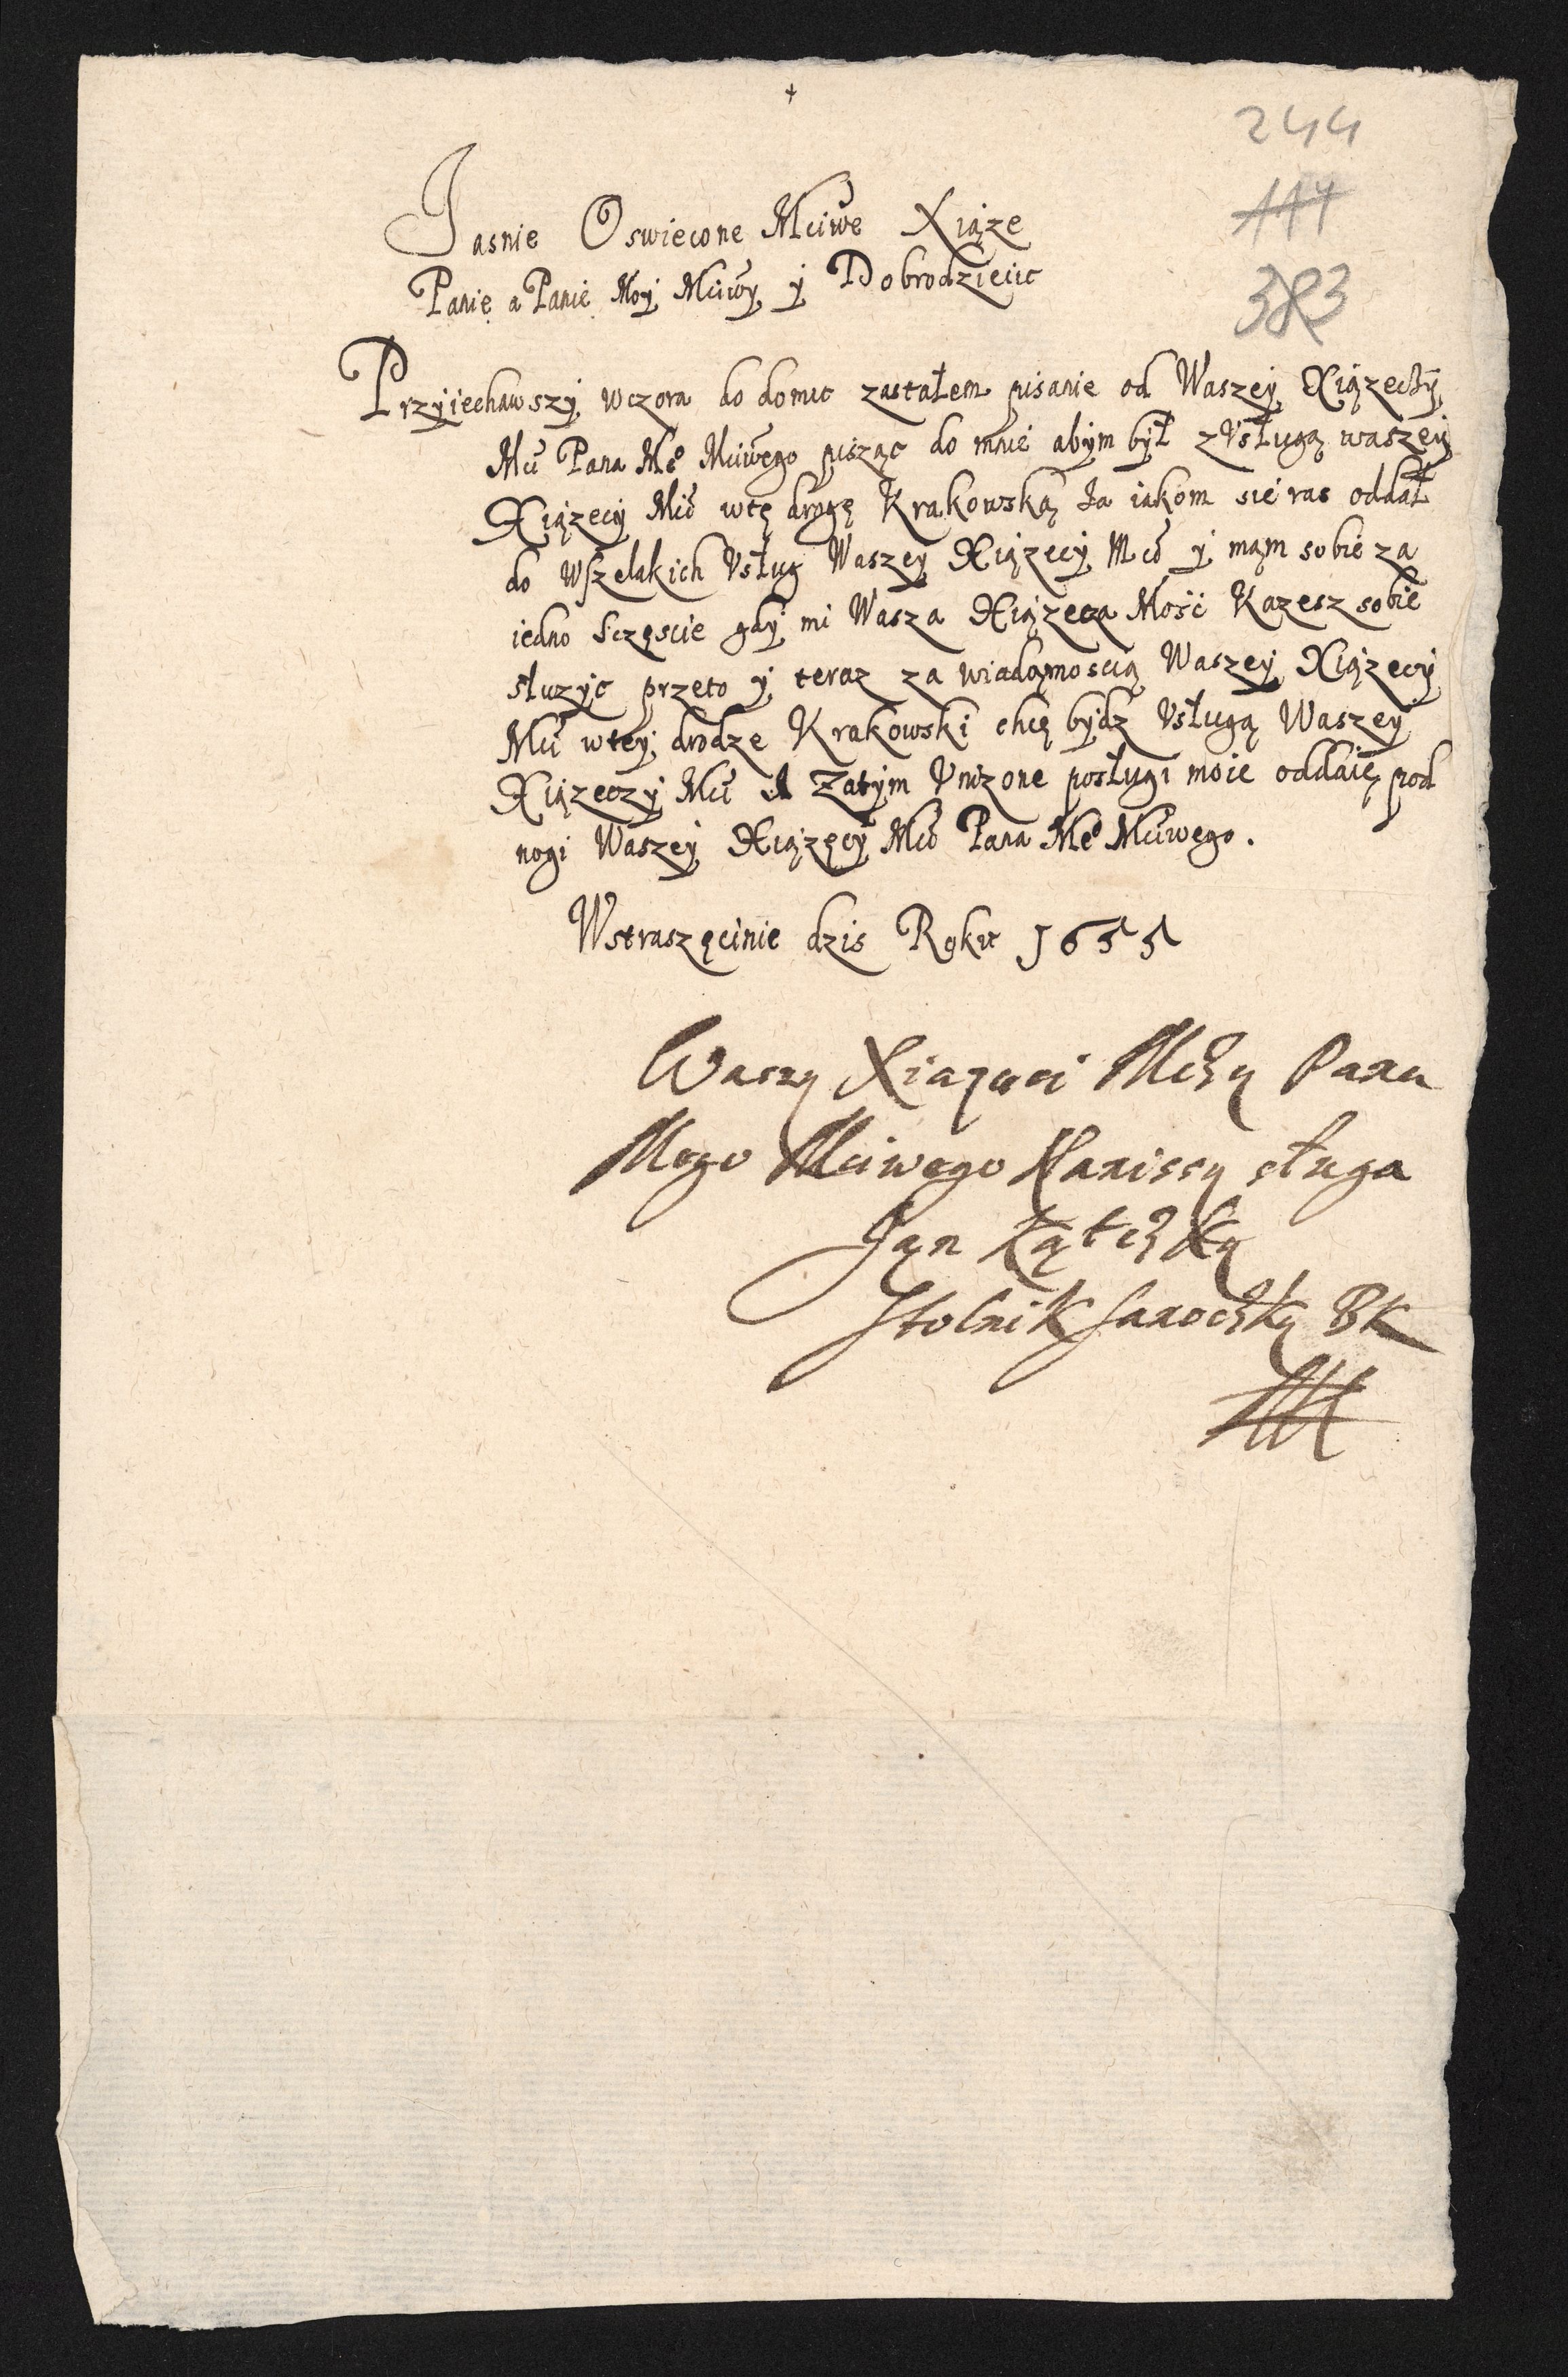 244
114
383
Jasnie Oswiecone Mciwe Xiąze
Panie a Panie Moy Mciwy y Dobrodzieiu
Przyiechawszy wczora do domu zastałem pisanie od Waszey Xiązecÿ
Mći Pana Mẻ Mciwego pisząc do mnie abym był zVsługą waszey
Xiązecy Mći wtę drogę Krakowską Ja iakom sie raz oddał
do wszelakich Vsług Waszey Xiązecy Mći y mąm sobie za
iedno Sczęscie gdy mi Wasza Xiązeca Mość Kazesz sobie
słuzyc przeto y teraz za wiadąmoscią Waszey Xiązecy
Mći wtey drodze Krakowski chcę bydz Vsługą Waszey
Xiązeczy Mći A Zatym Vnizone posługi moie oddaię pod
nogi Waszey Xiązęcy Mći Pana Mẻ Mciwego.
Wstraszęcinie dzis Roku 1655
Waszy Xiazeci Mczy Pana
Mego Mciwego Naniszy sługa
Jąn
Stolnik Sanoczky